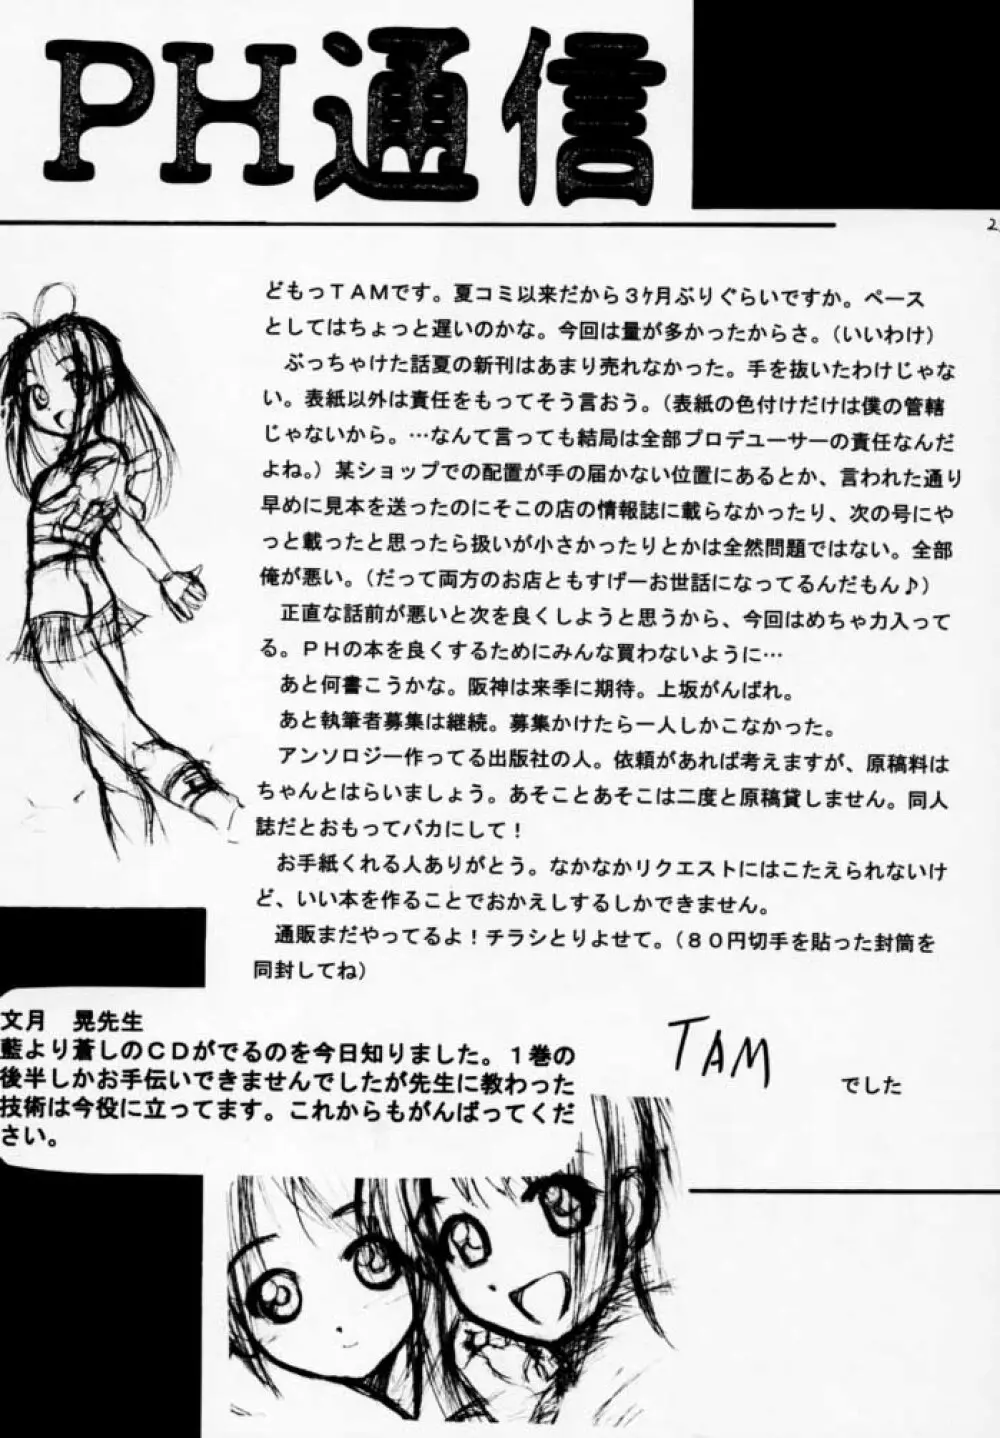 PH通信
どもっTAMです。夏コミ以来だから3ヶ月ぶりぐらいですか。ペース
としてはちょっと遅いのかな。今回は量が多かったからさ。（いいわけ）
ぶっちゃけた話夏の新刊はあまり売れなかった。手を抜いたわけじゃな
い。表紙以外は責任をもってそう言おう。（表紙の色付けだけは僕の管轄
じゃないから。…なんて言っても結局は全部プロデューサーの責任なんだ
よね。）某ショップでの配置が手の届かない位置にあるとか、言われた通り
早めに見本を送ったのにそこの店の情報誌に載らなかったり、次の号にや
っと載ったと思ったら扱いが小さかったりとかは全然問題ではない。全部
俺が悪い。（だって両方のお店ともすげー お世話になってるんだもん♪）
正直な話前が悪いと次を良くしようと思うから、今回はめちゃ力入って
る。PHの本を良くするためにみんな買わないように…
あと何書こうかな。阪神は来季に期待。上坂がんばれ。
あと執筆者募集は継続。募集かけたら一人しかこなかった。
アンソロジー作ってる出版社の人。依頼があれば考えますが、原稿料は
ちゃんとはらいましょう。あそことあそこは二度と原稿貸しません。同人
誌だとおもってバカにして！
お手紙くれる人ありがとう。なかなかリクエストにはこたえられないけ
ど、いい本を作ることでおかえしするしかできません。
通販まだやってるよ！チラシとりよせて。（８０円切手を貼った封筒を
同封してね）
TAM
でした
文月　晃先生
藍より蒼しのCDがでるのを今日知りました。１巻の
後半しかお手伝いできませんでしたが先生に教わった
技術は今役に立ってます。これからもがんばってくだ
さい。